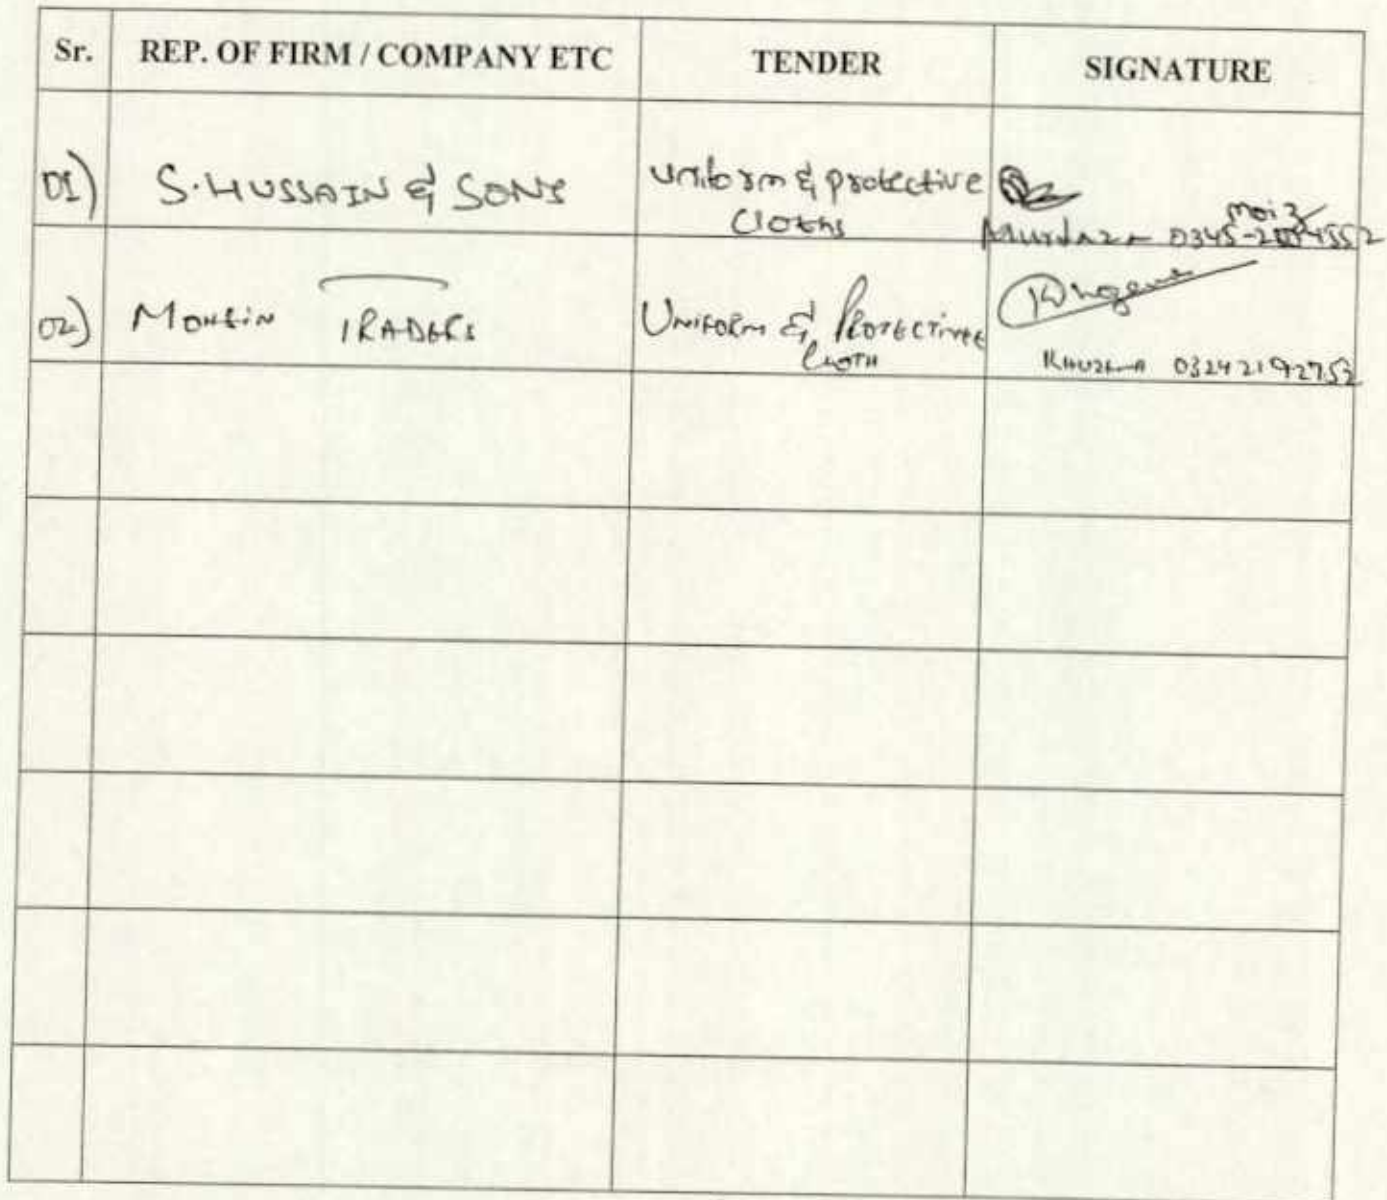 Sr. REP. OF FIRM / COMPANY ETC TENDER SIGNATURE
01) S. HUSSAIN & SONS Uniform & protective
Cloths
Moiz
Murtaza 0345-
02) MOHSIN TRADERS UNIFORM & PROTECTIVE
CLOTH
KHUZEMA 03242192752